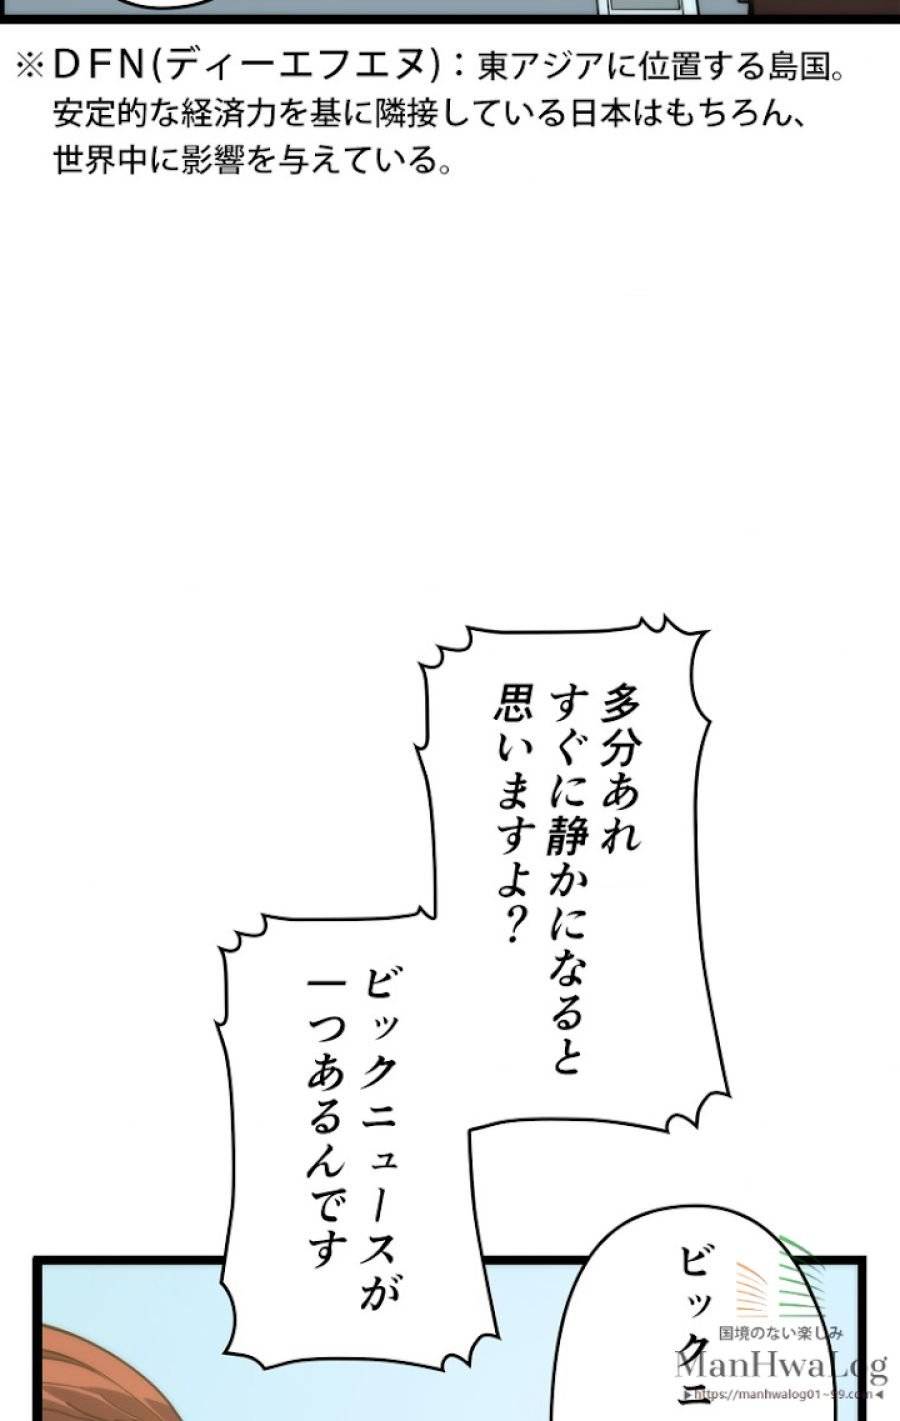 ※DFN(ディーエフエヌ)：東アジアに位置する島国。
安定的な経済力を基に隣接している日本はもちろん、
世界中に影響を与えている。
多分あれ
すぐに静かになると
思いますよ？
ビックニュースが
一つあるんです
ビックニ
国境のない楽しみ
ManHwaLog
▶https://manhwalog01~99.com◀